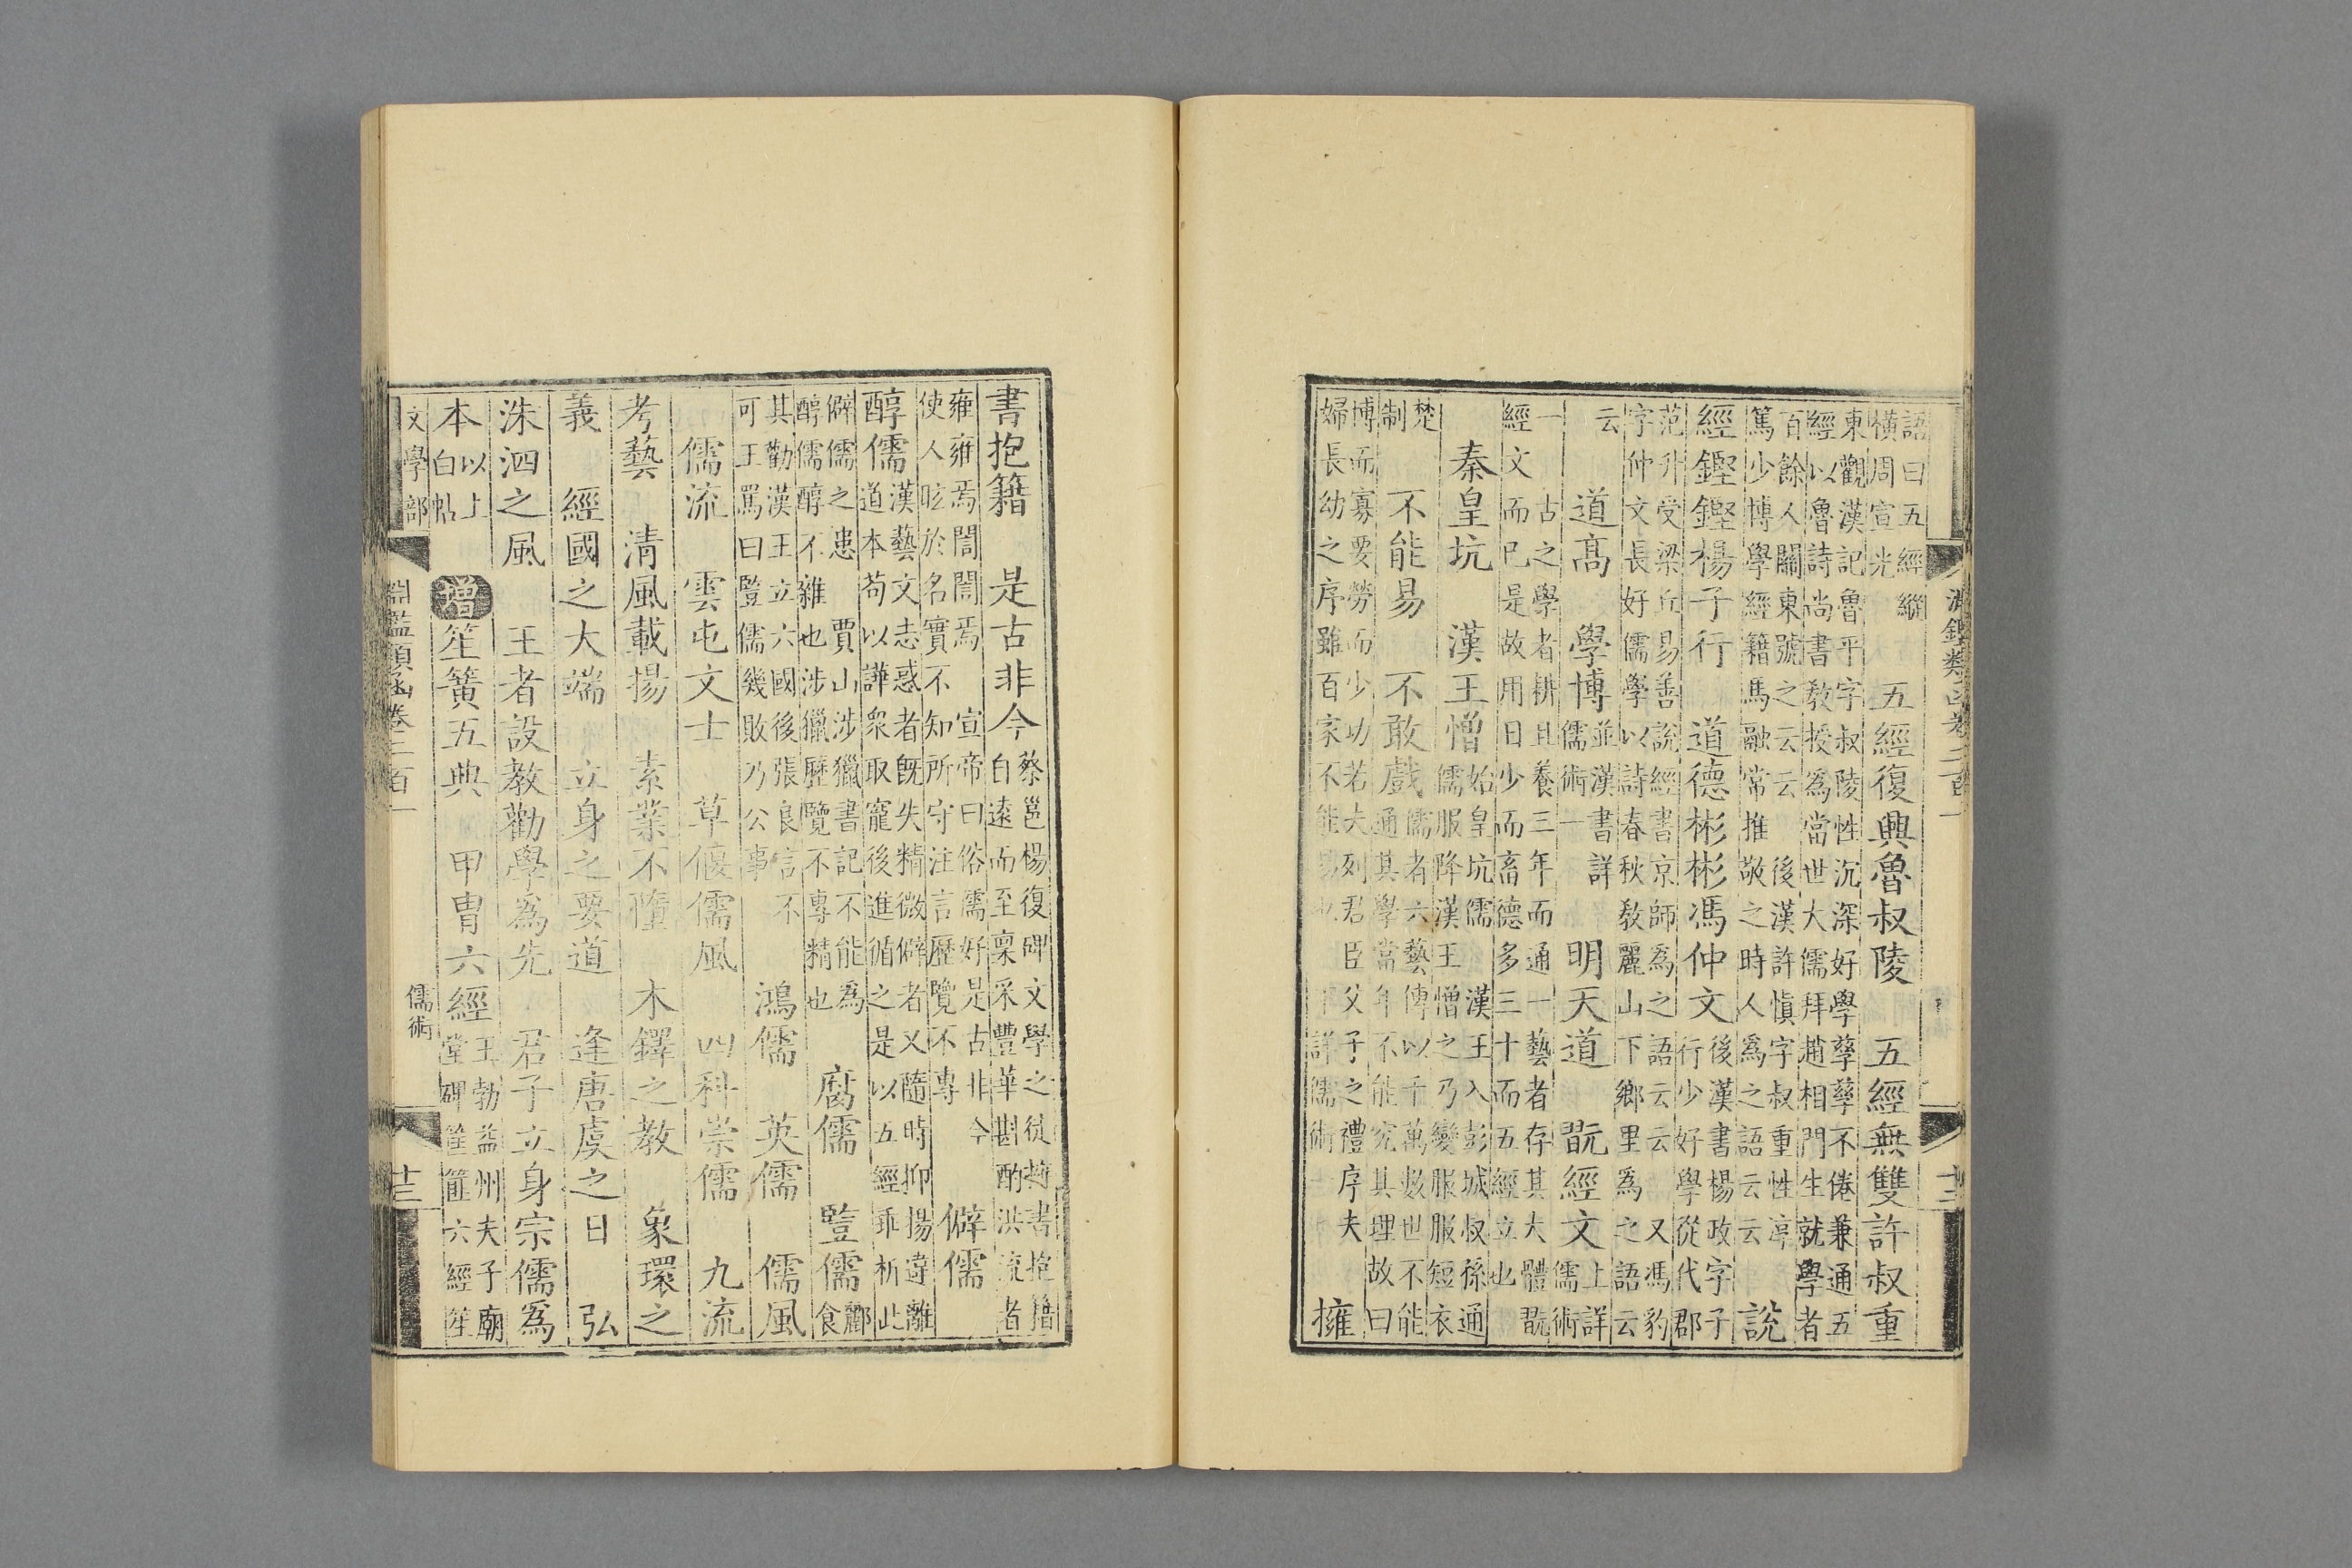 淵鑑類函卷二百一 十三
語曰五經縱
橫周宣光
五經復興魯叔陵 五經無雙許叔重
東觀漢記魯平字叔陵性沉深好學孳孳不倦兼通五
經以魯詩尚書敎授爲當世大儒拜趙相門生就學者
百餘人關東號之云云 後漢許愼字叔重性淳
篤少博學經籍馬融常推敬之時人爲之語云云
說
經鏗鏗楊子行 道德彬彬馮仲文
後漢書楊政字子
行少好學從代郡
范升受梁丘易善說經書京師爲之語云云 又馮豹
字仲文長好儒學以詩春秋敎麗山下鄉里爲之語云
云
道髙 學博
並漢書詳
儒術一
明天道 翫經文
上詳
儒術
一 古之學者耕且養三年而通一藝者存其大體翫
經文而已是故用日少而畜德多三十而五經立也
秦皇坑 漢王憎
始皇坑儒 漢王入彭城叔孫通
儒服降漢王憎之乃變服服短衣
楚
制
不能易 不敢戲
儒者六藝傳以千萬數世不能
通其學當年不能究其理故曰
博而寡要勞而少功若夫列君臣父子之禮序夫
婦長幼之序雖百家不能易也 詳儒術
擁
書抱籍 是古非今
蔡邕楊復碑文學之徒擁書抱籍
自遠而至稟采豐華斟酌洪流者
雍雍焉誾誾焉 宣帝曰俗儒好是古非今
使人眩於名實不知所守注言歷覽不專
僻儒
醇儒
漢藝文志惑者旣失精微僻者又隨時抑揚違離
道本苟以譁衆取寵後進循之是以五經乖析此
僻儒之患 賈山涉獵書記不能爲
醇儒醇不雜也涉獵歷覽不專精也
腐儒 豎儒
酈
食
其勸漢王立六國後張良言不
可王罵曰豎儒幾敗乃公事
鴻儒 英儒 儒風
儒流 雲屯文士 草偃儒風 四科崇儒 九流
考藝 清風載揚 素業不墮 木鐸之敎 象環之
義 經國之大端 立身之要道 逢唐虞之日 弘
洙泗之風 王者設敎勸學爲先 君子立身宗儒爲
本
以上
白帖
增 笙簧五典 甲胄六經
王勃益州夫子廟
堂碑筐篚六經笙
文學部 淵鑑類函卷二百一 儒術 十三